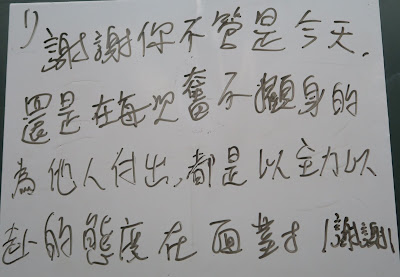 1) 謝謝你不管是今天,
還是在每次奮不顧身的
為他人付出,都是以主力以
赴的態度在面對!謝謝!